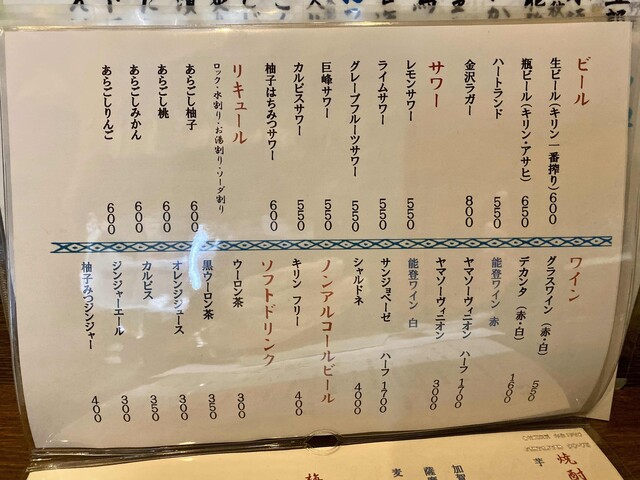 ビール
生ビール(キリン一番搾り)600
瓶ビール(キリン・アサヒ)650
ハートランド 550
金沢ラガー 800
サワー
レモンサワー 550
ライムサワー 550
グレープフルーツサワー 550
巨峰サワー 550
カルピスサワー 550
柚子はちみつサワー 600
リキュール
ロック・水割り・お湯割り・ソーダ割り
あらごし柚子 600
あらごし桃 600
あらごしみかん 600
あらごしりんご 600
ワイン
グラスワイン(赤・白) 550
デカンタ(赤・白) 1600
能登ワイン 赤
ヤマソーヴィニオン ハーフ 1700
ヤマソーヴィニオン 3000
能登ワイン 白
サンジョベーゼ ハーフ 1700
シャルドネ 4000
ノンアルコールビール
キリン フリー 400
ソフトドリンク
ウーロン茶 300
黒ウーロン茶 350
オレンジジュース 300
カルピス 350
ジンジャーエール 300
柚子みつジンジャー 400
焼酎
芋
加賀
薩摩
麦